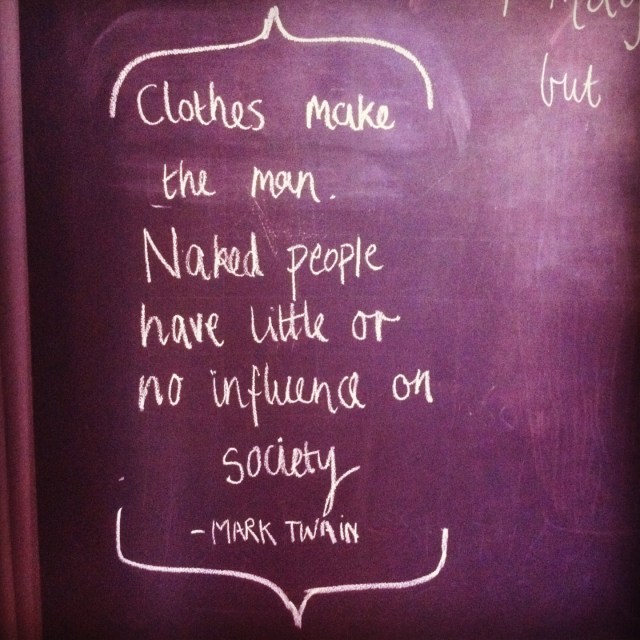 Clothes make
the man.
Naked people
have little or
no influence on
society
- MARK TWAIN
but